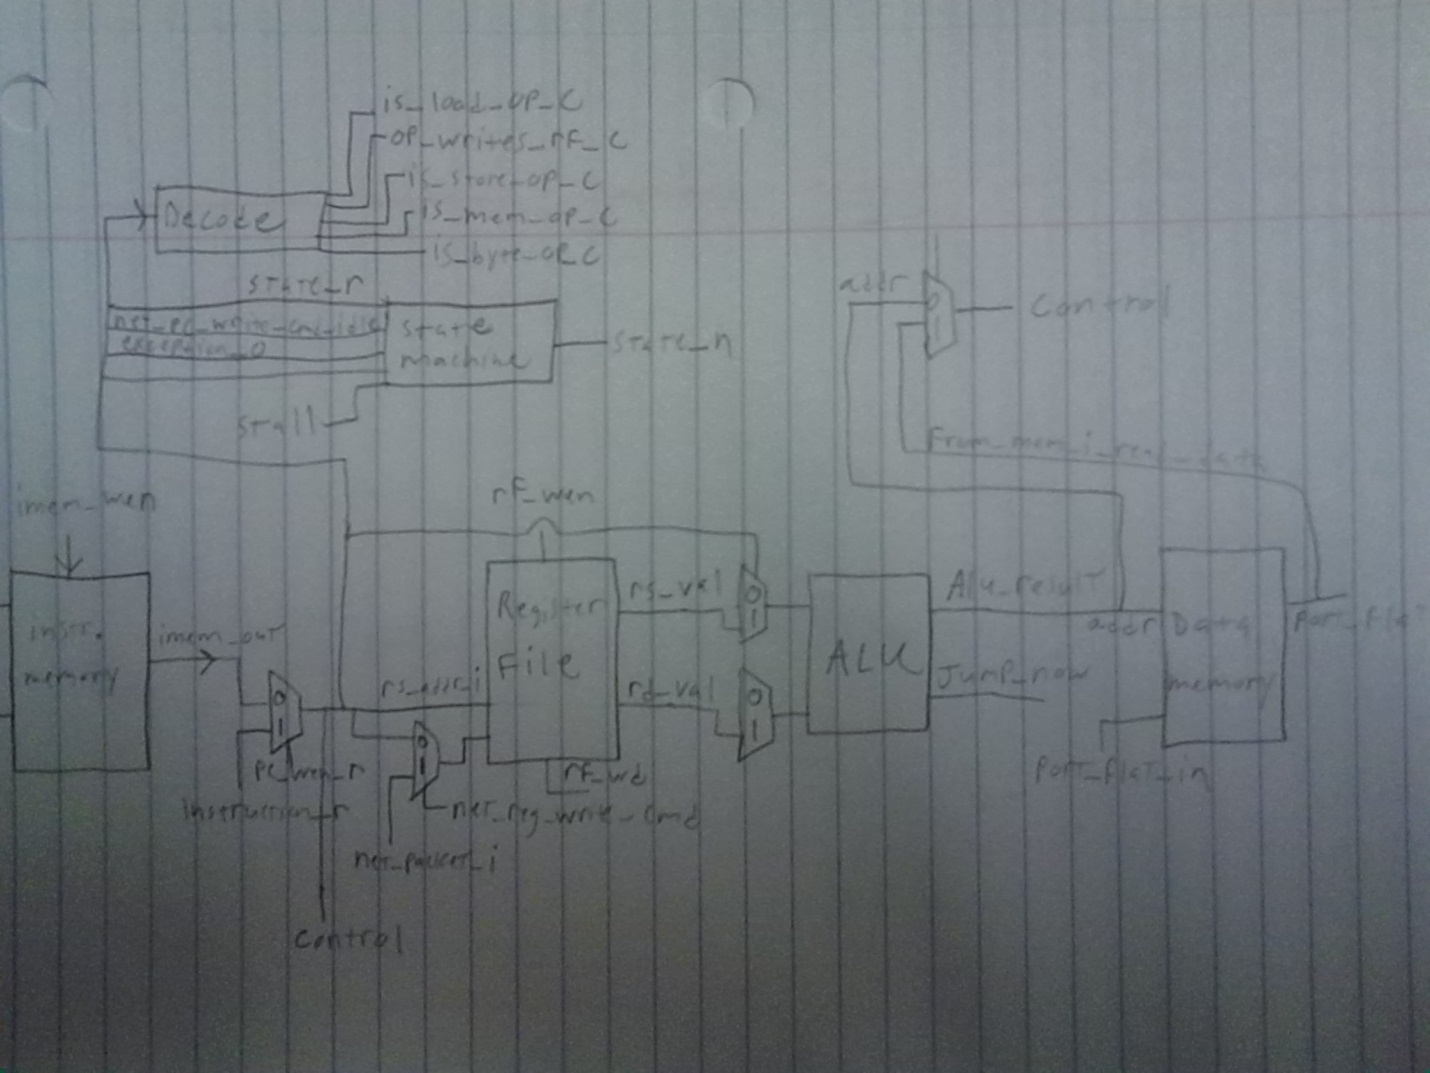 is_load_op_c
op_writes_rf_c
is_store_op_c
is_mem_op_c
is_byte_op_c
Decode
state_r
net_pc_write_cmd_idle
exception_o
state
machine
state_n
stall
addr
0
1
control
from_mem_i_read_data
imem_wen
instr.
memory
imem_out
0
1
pc_wen_r
instruction_r
control
rs_addr_i
0
1
net_reg_write_cmd
net_packet_i
rf_wen
Register
File
rf_wd
rs_val
rd_val
0
1
0
1
ALU
Alu_result
Jump_now
addr
Data
memory
port_flat_in